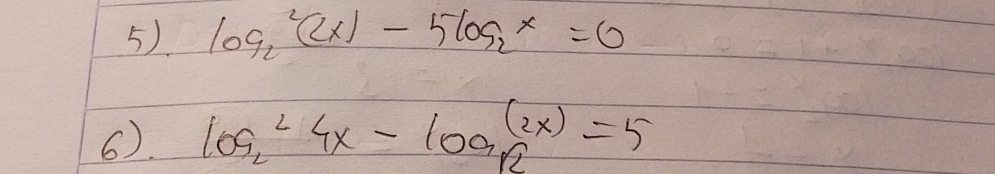 5). log₂²(2x) - 5log₂x = 0
6). log₂² 4x - log_√2 (2x) = 5